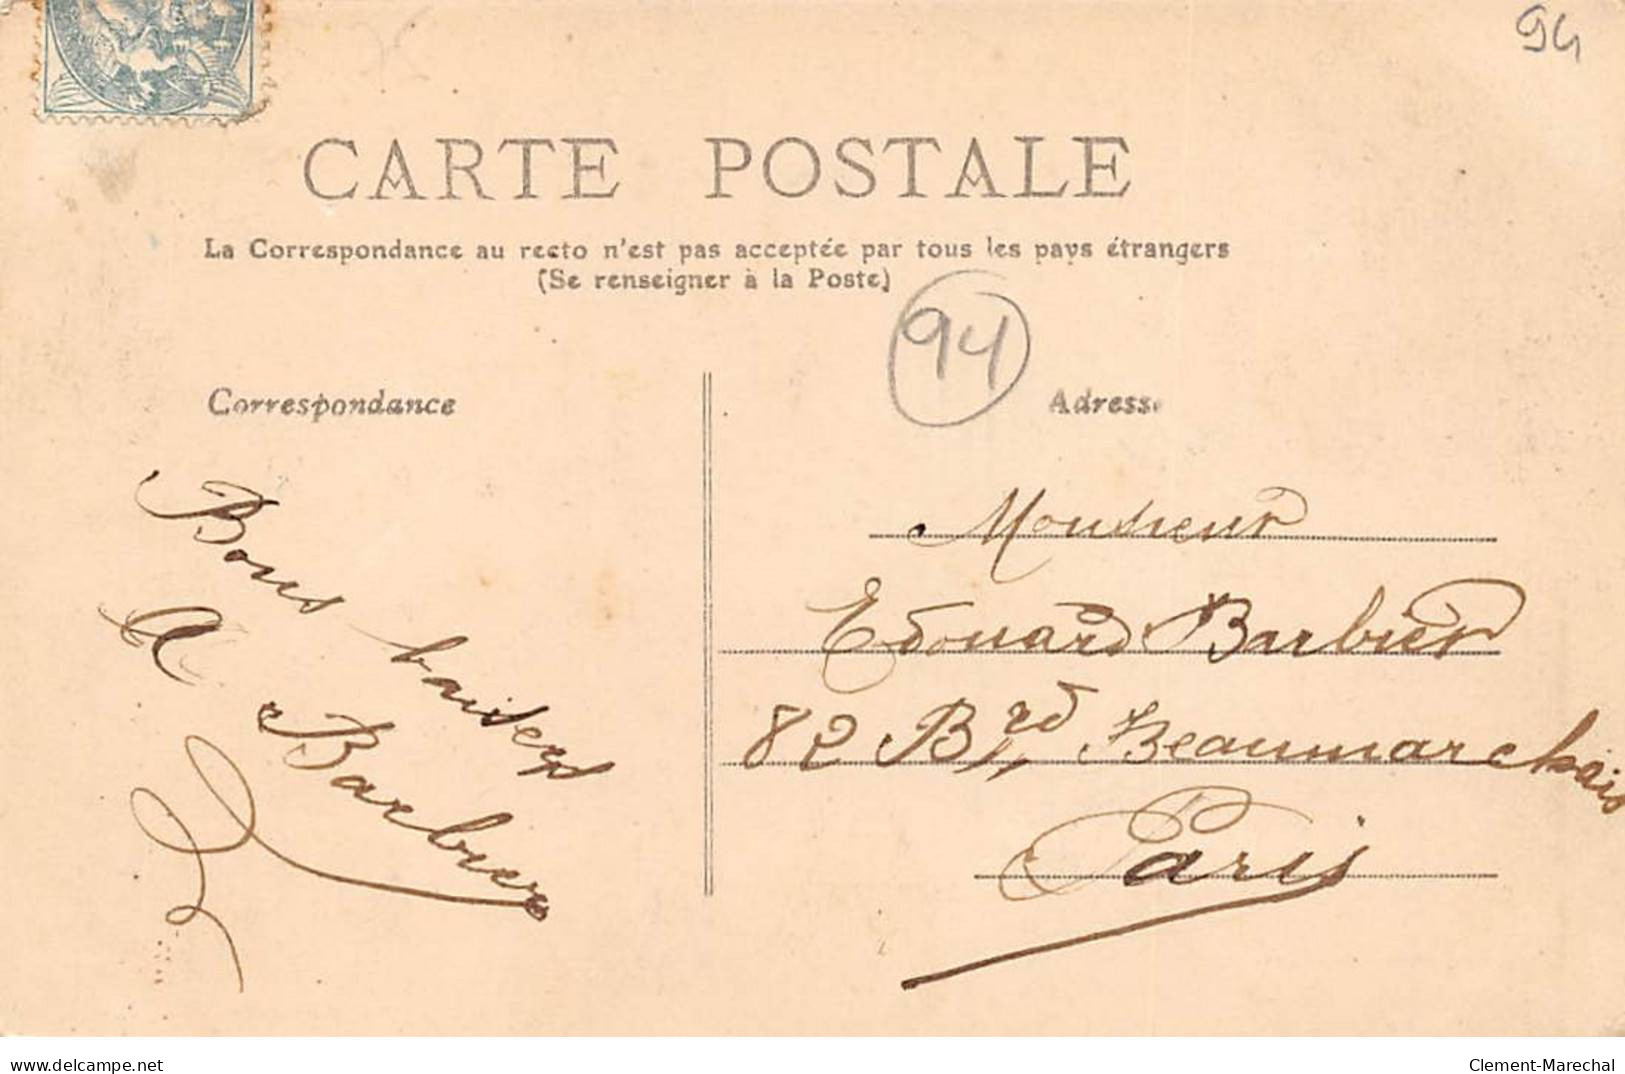 94
CARTE POSTALE
La Correspondance au recto n'est pas acceptée par tous les pays étrangers
(Se renseigner à la Poste)
94
Correspondance
Adresse
Bons baisers
A Barbier
Monsieur
Edouard Barbier
82 Brd Beaumarchais
Paris
www.delcampe.net
Clement-Marechal